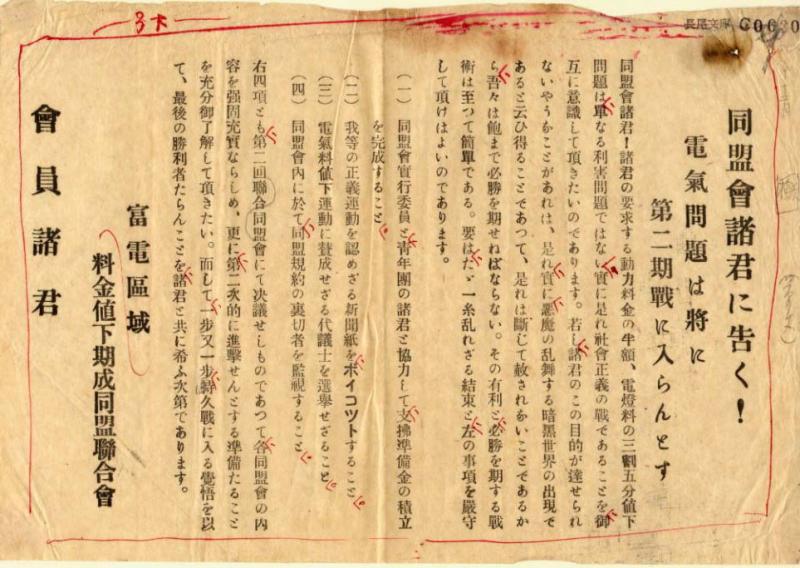 長尾文庫 C0630
3卡
同盟會諸君に告く！
電氣問題は將に
第二期戰に入らんとす
同盟會諸君！諸君の要求する動力料金の半額、電燈料の三割五分値下
問題は單なる利害問題ではない實に是れ社會正義の戰であることを御
互に意識して頂きたいのであります。若し諸君のこの目的が達せられ
ないやうなことがあれは、是れ實に惡魔の乱舞する暗黑世界の出現で
あると云ひ得ることであつて、是れは斷じて赦されないことであるか
ら吾々は飽まで必勝を期せねばならない。その有利と必勝を期する戰
術は至つて簡單である。要はたゞ一糸乱れざる結束と左の事項を嚴守
して頂けはよいのであります。
（一）　同盟會實行委員と靑年團の諸君と協力して支拂準備金の積立
を完成すること
（二）　我等の正義運動を認めざる新聞紙をボイコツトすること
（三）　電氣料値下運動に賛成せざる代議士を選擧せざること
（四）　同盟會內に於て同盟規約の裏切者を監視すること
右四項とも第二回聯合同盟會にて決議せしものであつて各同盟會の內
容を强固充實ならしめ、更に第二次的に進擊せんとする準備たること
を充分御了解して頂きたい。而して一步又一步持久戰に入る覺悟を以
て、最後の勝利者たらんことを諸君と共に希ふ次第であります。
富電區域
料金値下期成同盟聯合會
會員諸君